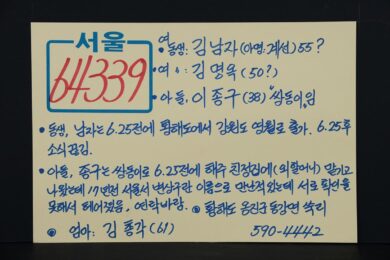 서울
64339
여
•동생: 김남자 (아명:계선) 55?
•여 〃: 김명옥 (50?)
•아들: 이종구 (38) "쌍동이"임
•동생, 남자는 6.25전에 황해도에서 강원도 영월로 출가. 6.25후
소식 끊김.
•아들, 종구는 쌍동이로 6.25전에 해주 친정집에 (외할머니) 맡기고
나왔는데 17년전 서울서 변상구란 이름으로 만난적 있는데 서로 확인을
못해서 헤어졌음. 연락바람. ◉ 황해도 옹진군 동강면
◉ 엄마: 김풍각 (61) 590-4442